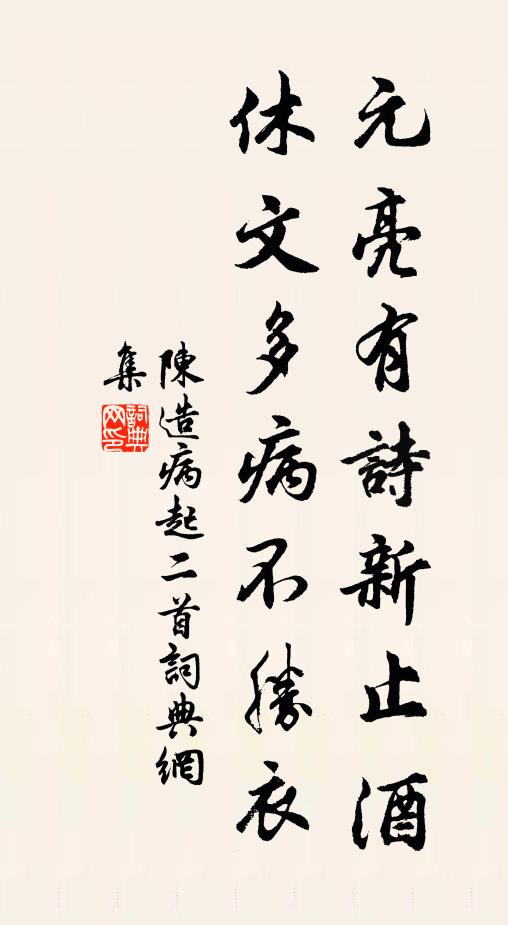 元亮有詩新止酒
休文多病不勝衣
陳造病起二首詞典網
集
詞典网印